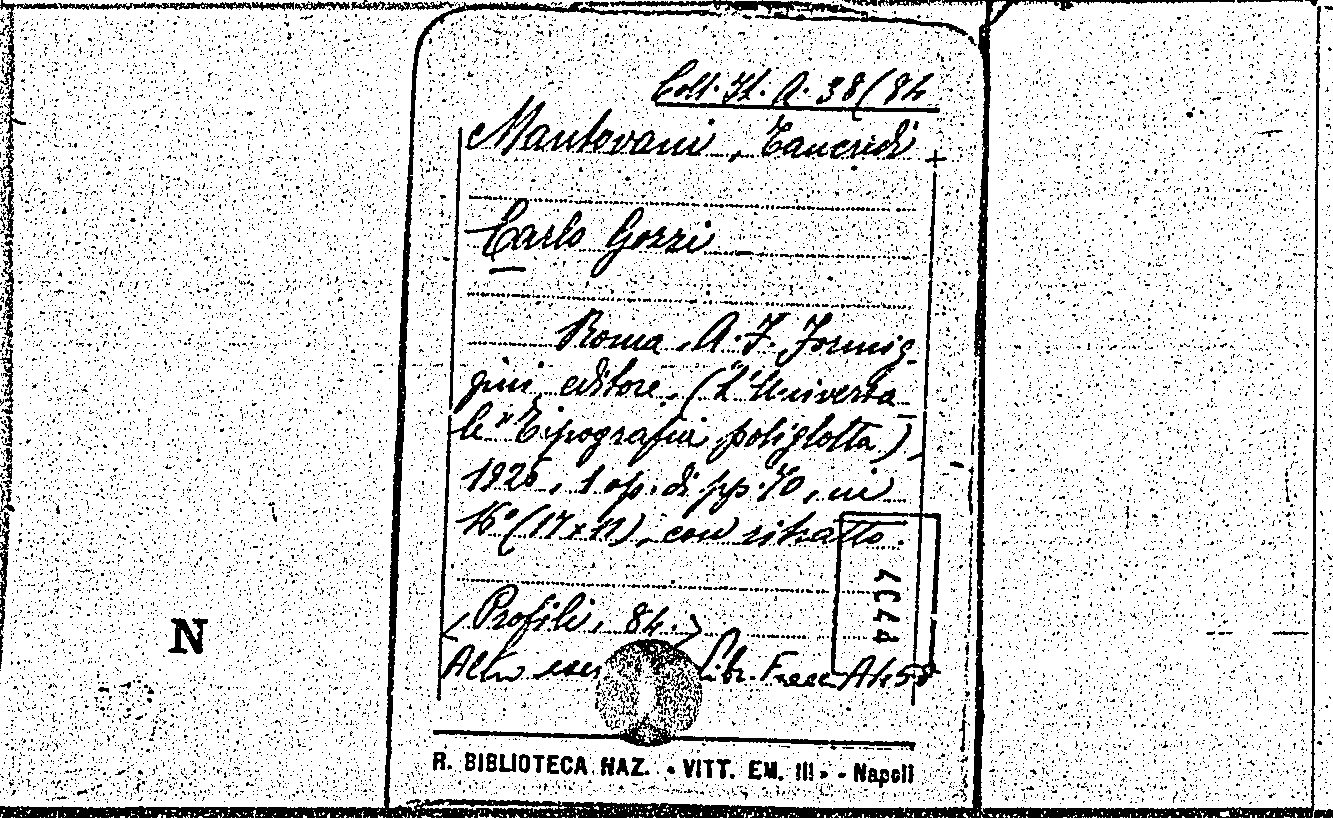 Coll. It. A. 38(84
Mantovani, Tancredi.
Carlo Gozzi
Roma, A. F. Formig-
gini editore, ("L'Universa-
le" Tipografia poliglotta),
1926, 1 op. di pp. 70, in
16° (17x11), con ritratto.
<Profili, 84.>
Altro Libr. Fracc. A 450
R. BIBLIOTECA NAZ. "VITT. EM. III" - Napoli
N